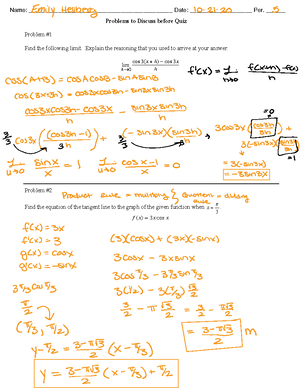 Name: Emily Hesberg Date: 10-21-20 Per. 5
Problems to Discuss before Quiz
Problem #1
Find the following limit. Explain the reasoning that you used to arrive at your answer.
lim h→0 (cos 3(x + h) − cos 3x) / h
f'(x) = lim h→0 (f(x+h) - f(x)) / h
cos(A+B) = cosAcosB - sinAsinB
cos(3x+3h) = cos3xcos3h - sin3xsin3h
(cos3xcos3h - cos3x) / h - (sin3xsin3h) / h
3/3 cos3x ((cos3h - 1) / 3h) + 3/3 (-sin3x)(sin3h / 3h)
3cos3x (cos3h / 3h) + =0
3(-sin3x)(sin3h / 3h) =1
= 3(-sin3x)
= -3sin3x
lim u→0 sinx / x = 1 lim u→0 (cosx - 1) / x = 0
Problem #2 Product rule = multiplying { Quotient rule = dividing
Find the equation of the tangent line to the graph of the given function when x = π/3.
f(x) = 3x cos x
f(x) = 3x
f'(x) = 3
g(x) = cosx
g'(x) = -sinx
(3)(cosx) + (3x)(-sinx)
3cosx - 3xsinx
3cos π/3 - 3π/3 sin π/3
3(1/2) - 3(π/3) √3/2
3/2 - π√3/2 = 3/2 - π√3/2
= (3-π√3)/2 m
3π/3 cos π/3
π/2
(π/3, π/2)
y - π/2 = (3-π√3)/2 (x - π/3)
y = (3-π√3)/2 (x - π/3) + π/2